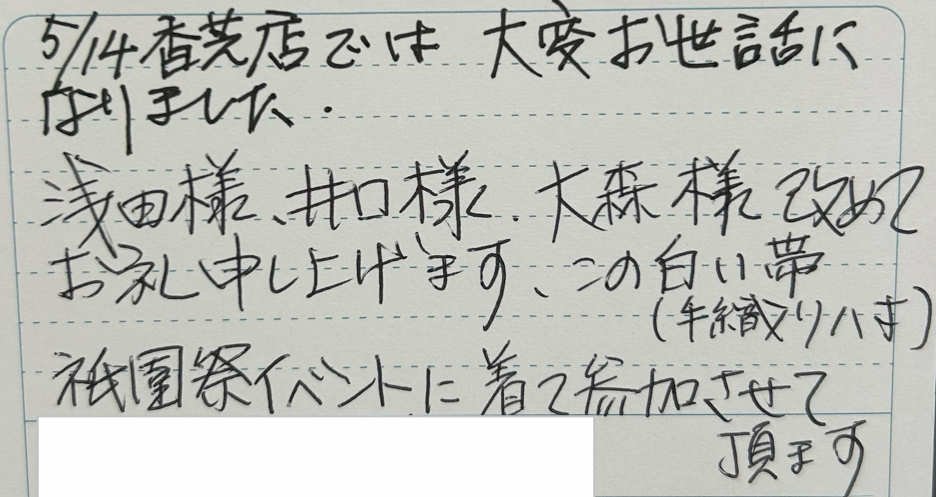 5/14香芝店では 大変お世話に
なりました.
浅田様、井口様、大森様 改めて
お礼申し上げます、この白い帯
(手織り八寸)
祇園祭イベントに着て参加させて
頂ます